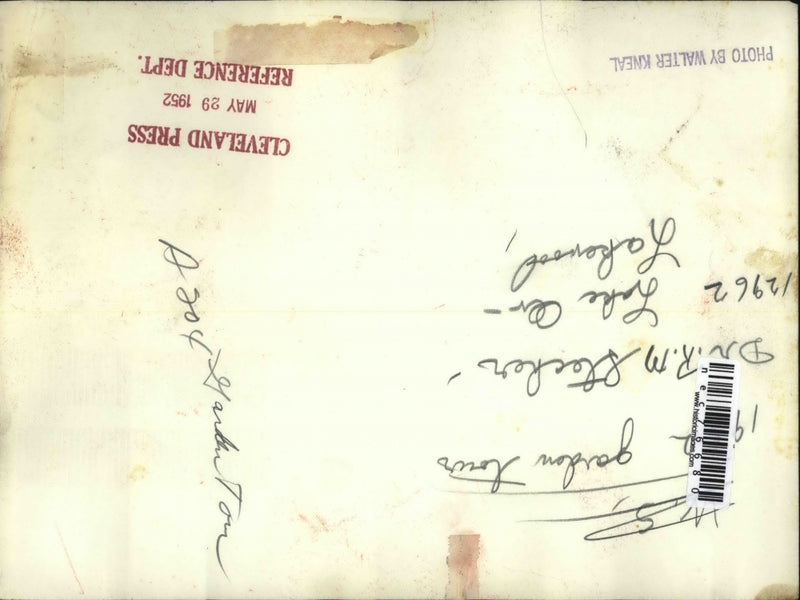 W.S.
garden tour
Dr. R.M Stecher,
12962
Lake Av-
Lakewood,
A 204 Garden Tour
CLEVELAND PRESS
MAY 29 1952
REFERENCE DEPT.
PHOTO BY WALTER KNEAL
www.historicimages.com
nec76680